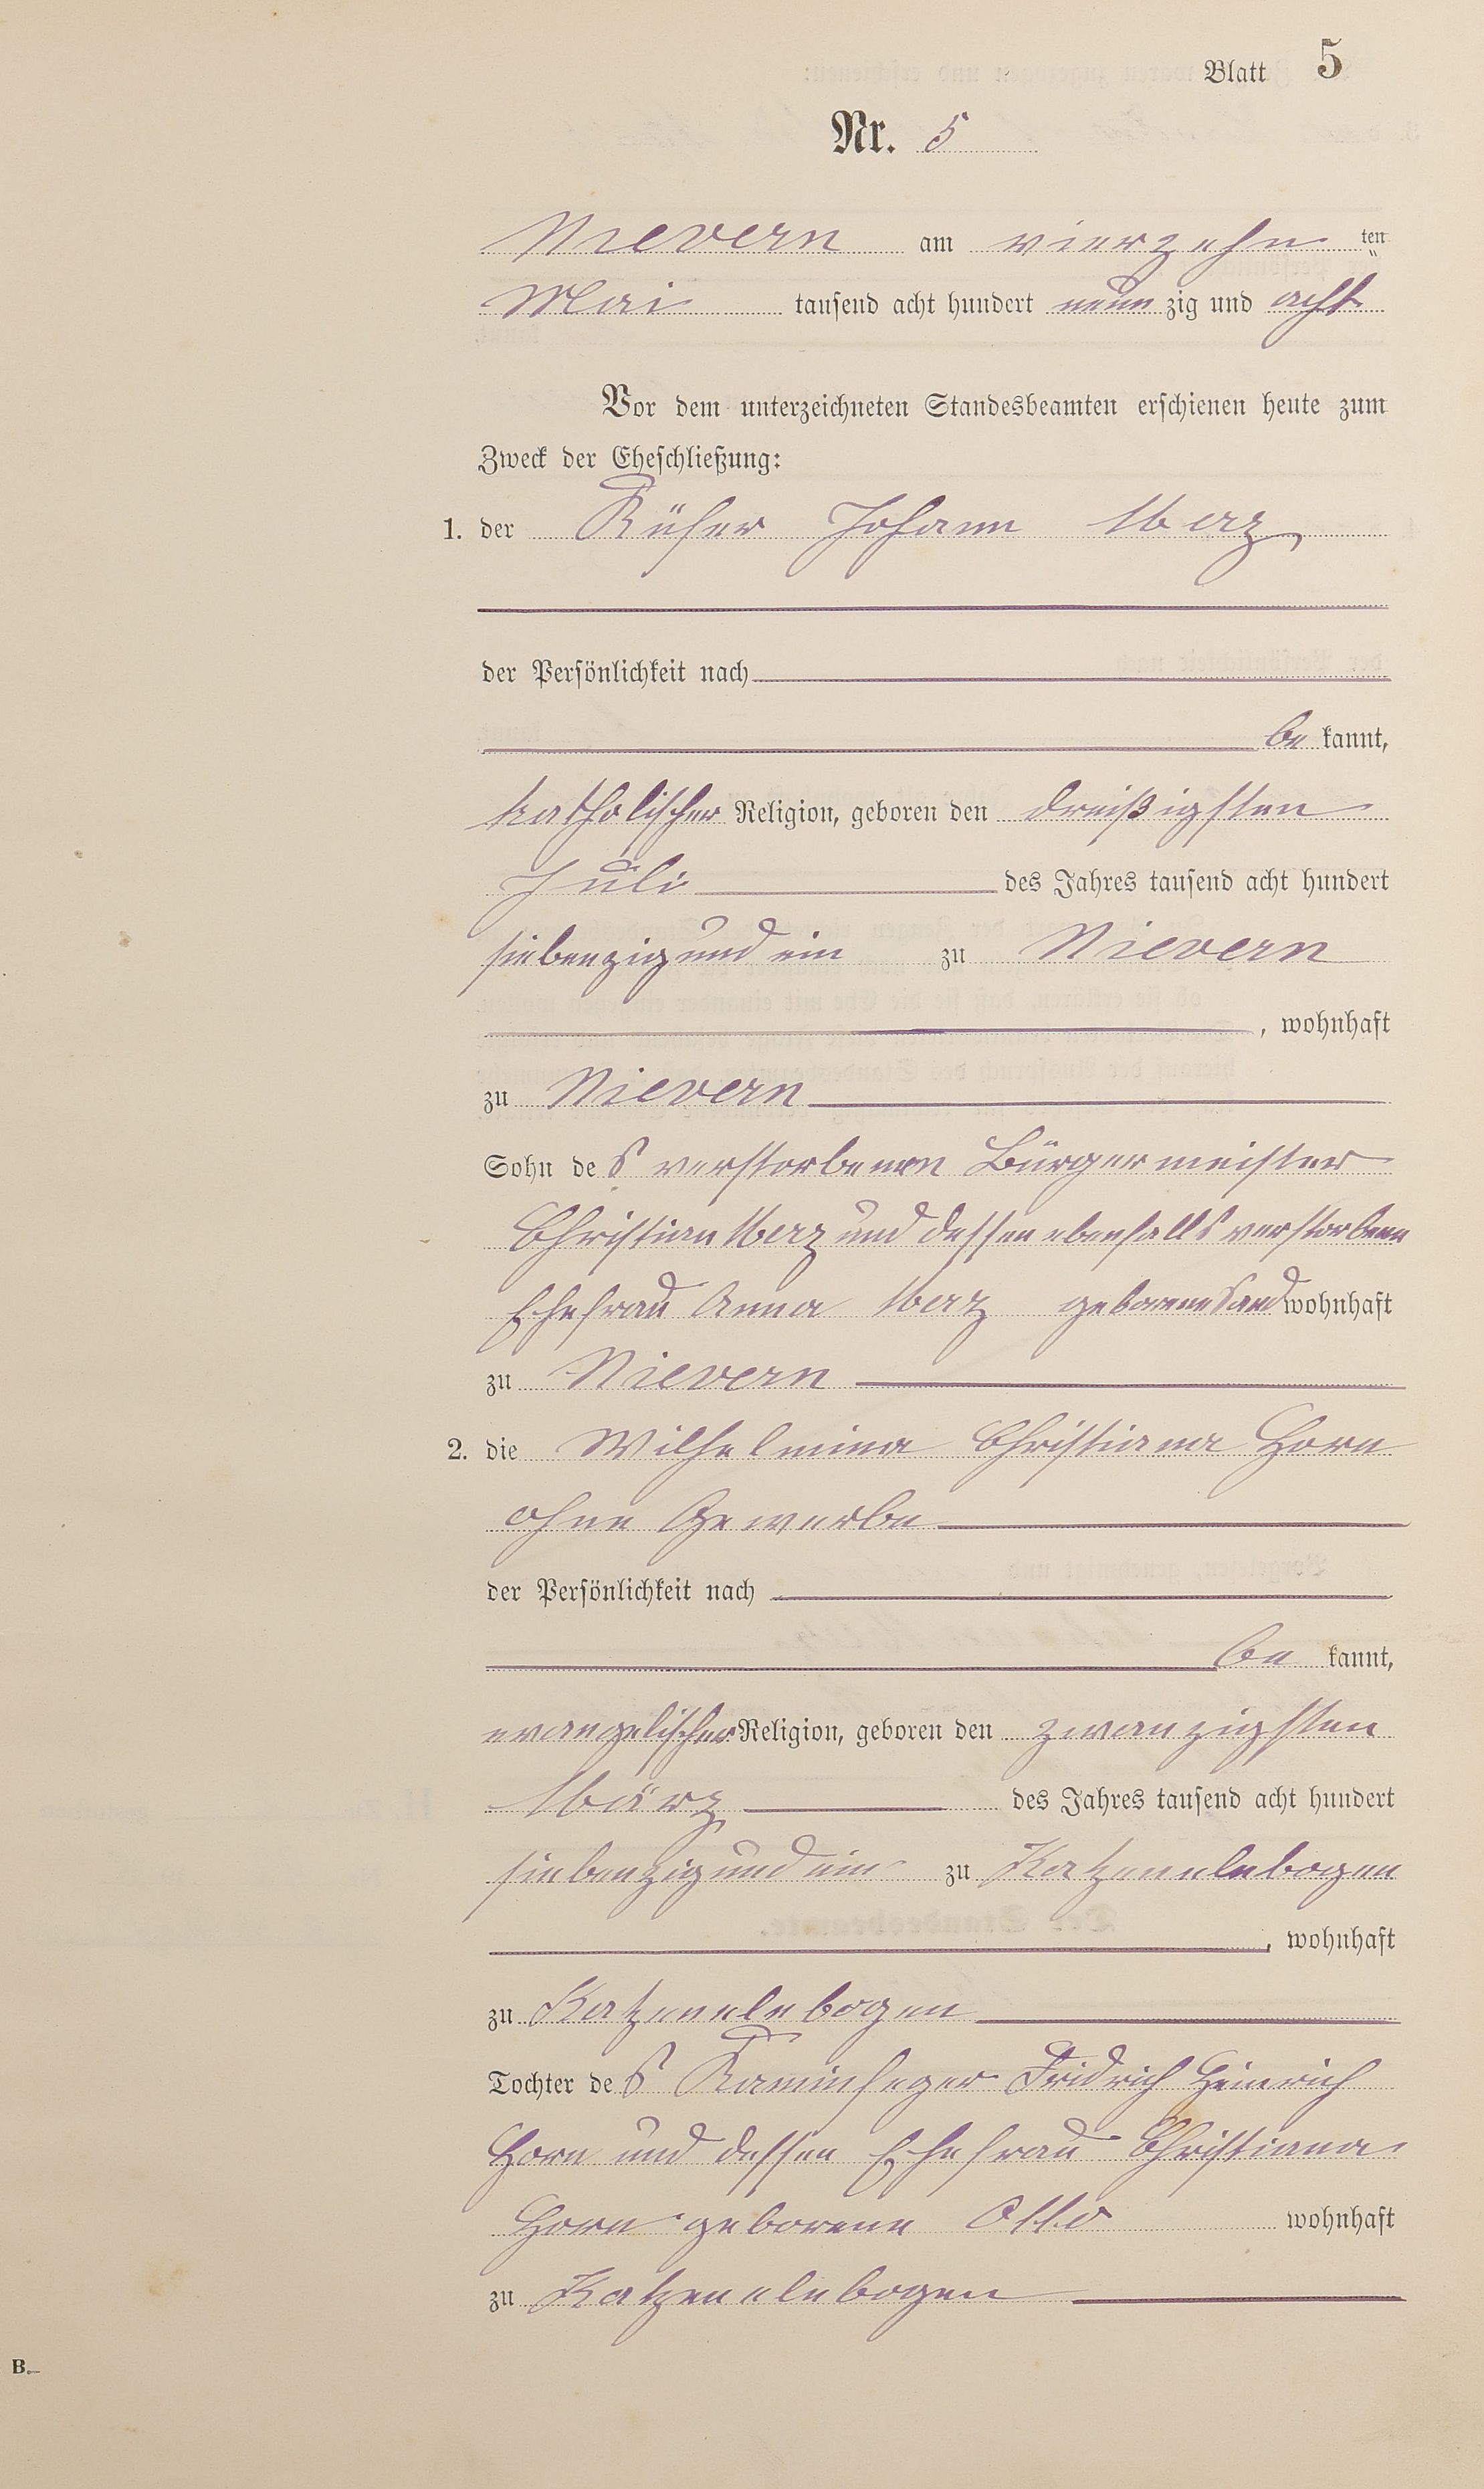 Blatt 5
Nr. 5
Nievern am vierzehn ten
Mai tausend acht hundert neun zig und acht
Vor dem unterzeichneten Standesbeamten erschienen heute zum
Zweck der Eheschließung:
1. der Küfer Johann Merz
der Persönlichkeit nach
be kannt,
katholischer Religion, geboren den dreißigsten
Juli des Jahres tausend acht hundert
siebenzig und ein zu Nievern
, wohnhaft
zu Nievern
Sohn des verstorbenen Bürgermeister
Christian Merz und dessen ebenfalls verstorbene
Ehefrau Anna Merz geborene Sand wohnhaft
zu Nievern
2. die Wilhelmina Christiana Horn
ohne Gewerbe
der Persönlichkeit nach
be kannt,
evangelischer Religion, geboren den zwanzigsten
März des Jahres tausend acht hundert
siebenzig und ein zu Katzenelnbogen
, wohnhaft
zu Katzenelnbogen
Tochter des Kaminfeger Fridrich Heinrich
Horn und dessen Ehefrau Christiana
Horn geborene Otto wohnhaft
zu Katzenelnbogen
B.